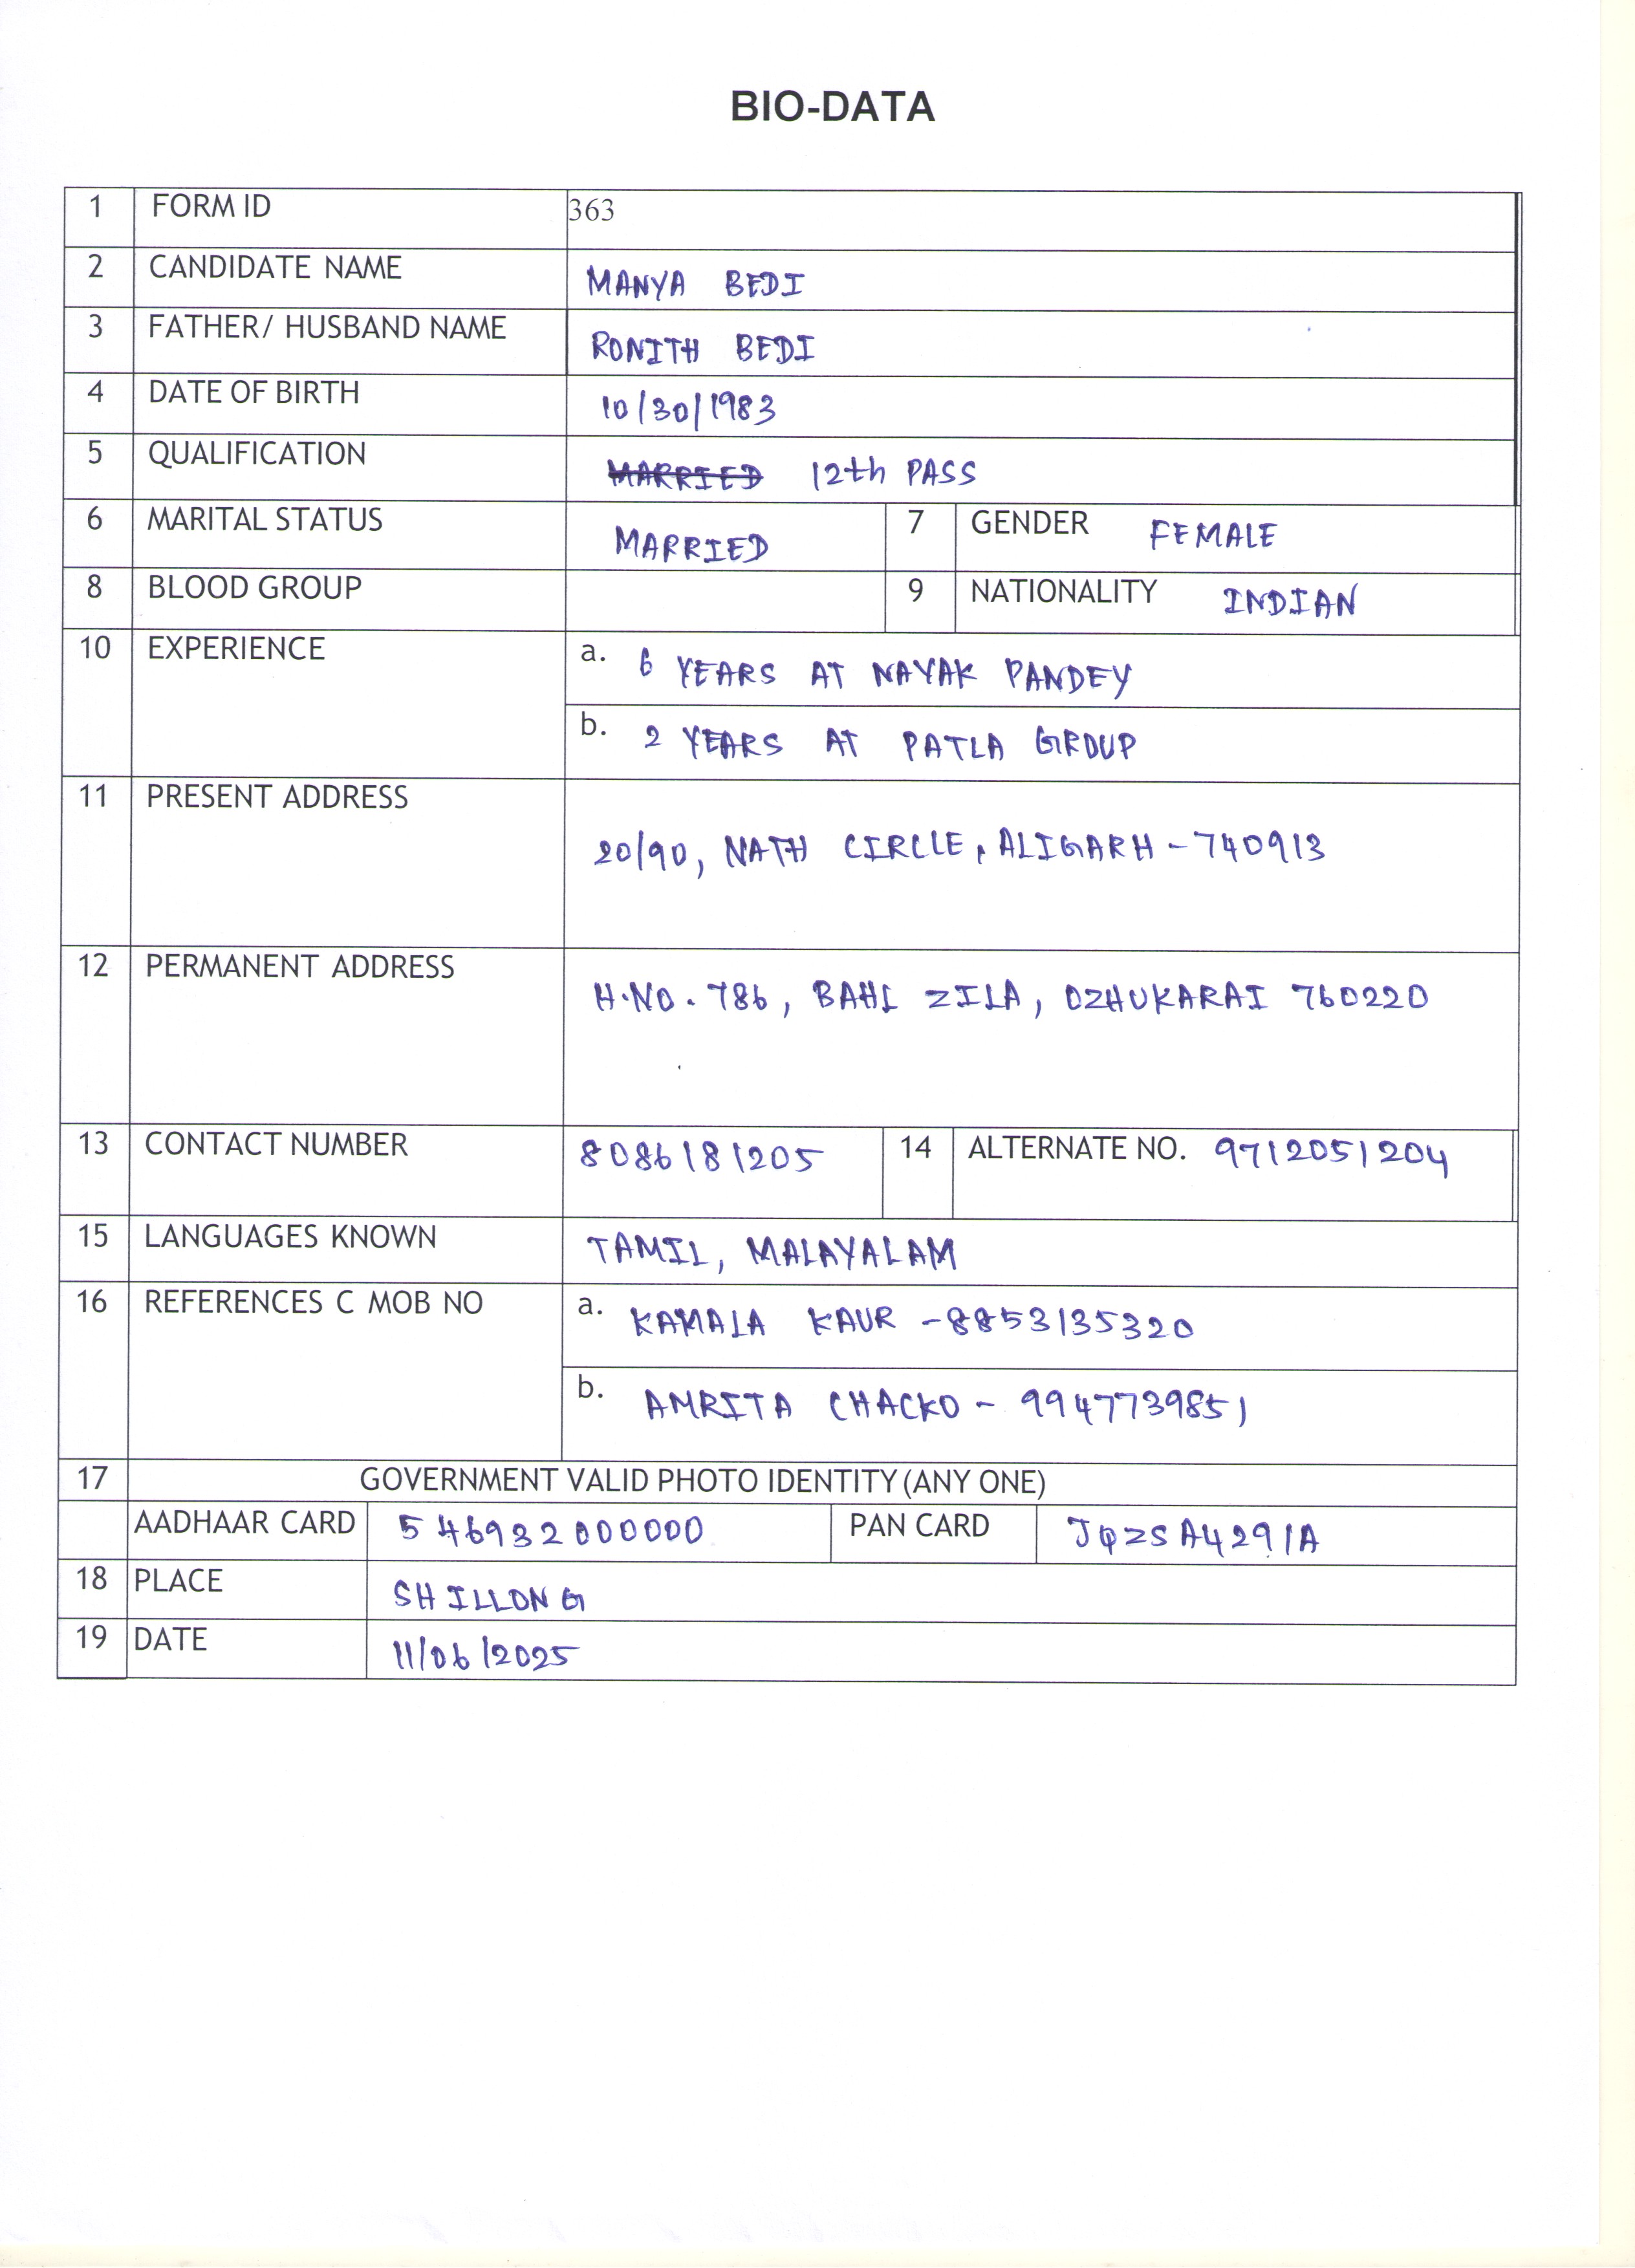 BIO-DATA
1 FORM ID 363
2 CANDIDATE NAME MANYA BEDI
3 FATHER/ HUSBAND NAME RONITH BEDI
4 DATE OF BIRTH 10/30/1983
5 QUALIFICATION MARRIED 12th PASS
6 MARITAL STATUS MARRIED 7 GENDER FEMALE
8 BLOOD GROUP 9 NATIONALITY INDIAN
10 EXPERIENCE a. 6 YEARS AT NAYAK PANDEY
b. 2 YEARS AT PATLA GROUP
11 PRESENT ADDRESS
20/90, NATH CIRCLE, ALIGARH - 740913
12 PERMANENT ADDRESS
H.NO. 786, BAHL ZILA, OZHUKARAI 760220
13 CONTACT NUMBER 8086181205 14 ALTERNATE NO. 9712051204
15 LANGUAGES KNOWN TAMIL, MALAYALAM
16 REFERENCES C MOB NO a. KAMALA KAUR - 8853135320
b. AMRITA CHACKO - 9947739851
17 GOVERNMENT VALID PHOTO IDENTITY (ANY ONE)
AADHAAR CARD 546932000000 PAN CARD JQZSA4291A
18 PLACE SHILLONG
19 DATE 11/06/2025